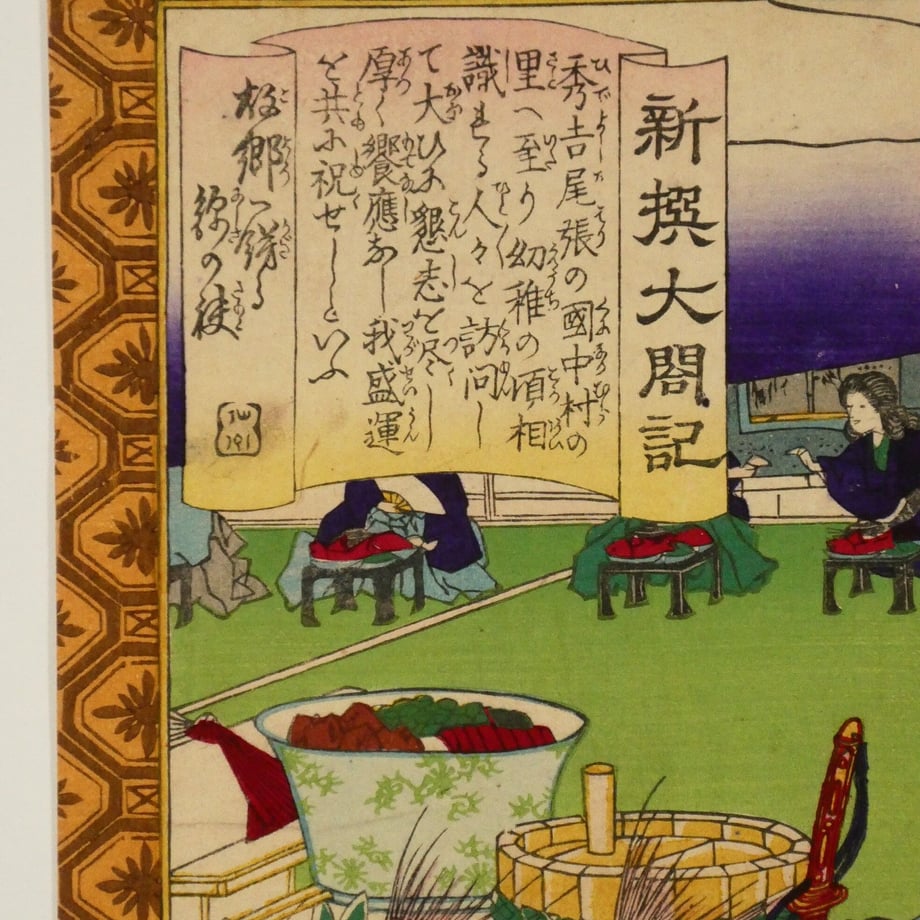 新撰大閤記
秀吉尾張の國中村の
里へ至り幼稚の頃相
識まる人々を訪問し
て大ひに懇志を尽し
厚く饗應なし我盛運
を共に祝せしといふ
故郷へ錺る
錦の袂